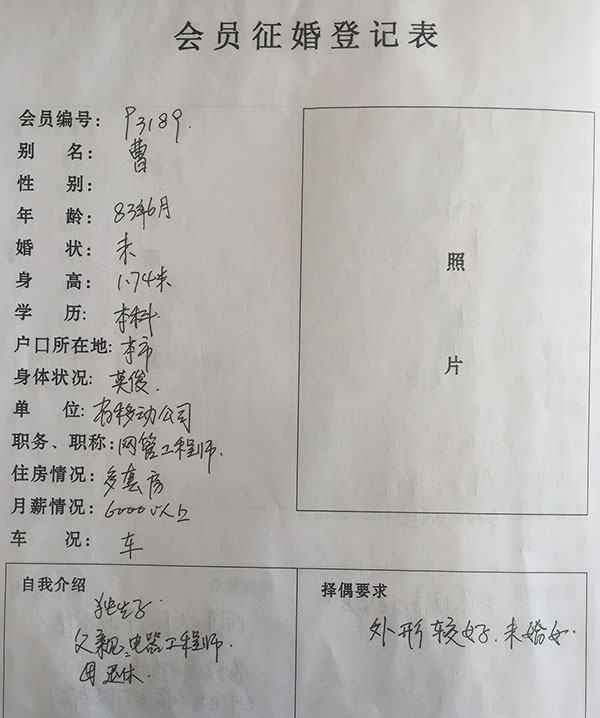 会员征婚登记表
会员编号: P3189.
别 名: 曹
性 别:
年 龄: 83年6月
婚 状: 未
身 高: 1.74米
学 历: 本科
户口所在地: 本市
身体状况: 英俊.
单 位: 省移动公司
职务、职称: 网管工程师.
住房情况: 多套房
月薪情况: 6000以上
车 况: 车
照
片
自我介绍
独生子.
父亲:电器工程师.
母退休.
择偶要求
外形较好.未婚女.